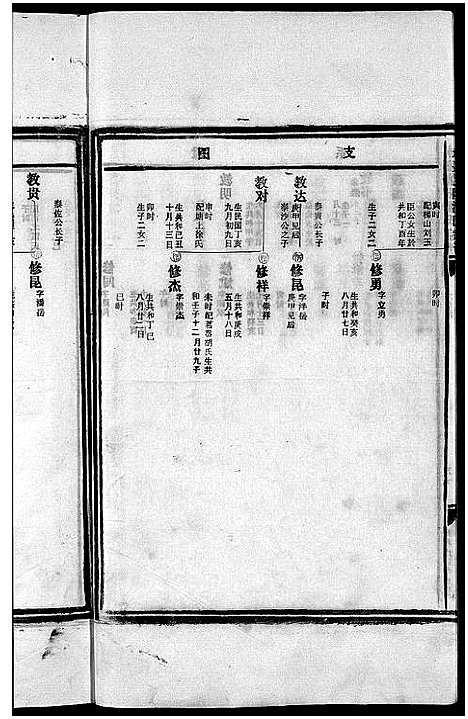 支
图
寅时
配梯山刘玉
臣公女生於
共和丁酉年
生子二女二
卯时
修勇
字立勇
生共和癸亥
八月廿七日
子时
教达
泰寅公长子
庚甲兄后
泰沙公之子
修昆
字洋岳
庚甲兄后
教对
生民国丁亥
九月初九日
申时
配塘上徐氏
生共和己丑
十月十三日
卯时
生子二女二
修祥
字崇祥
生共和庚戌
五月十八日
未时
和壬子十二月廿九子
修杰
字崇杰
生共和丁巳
八月廿二日
巳时
教贵
泰佐公长子
修昆